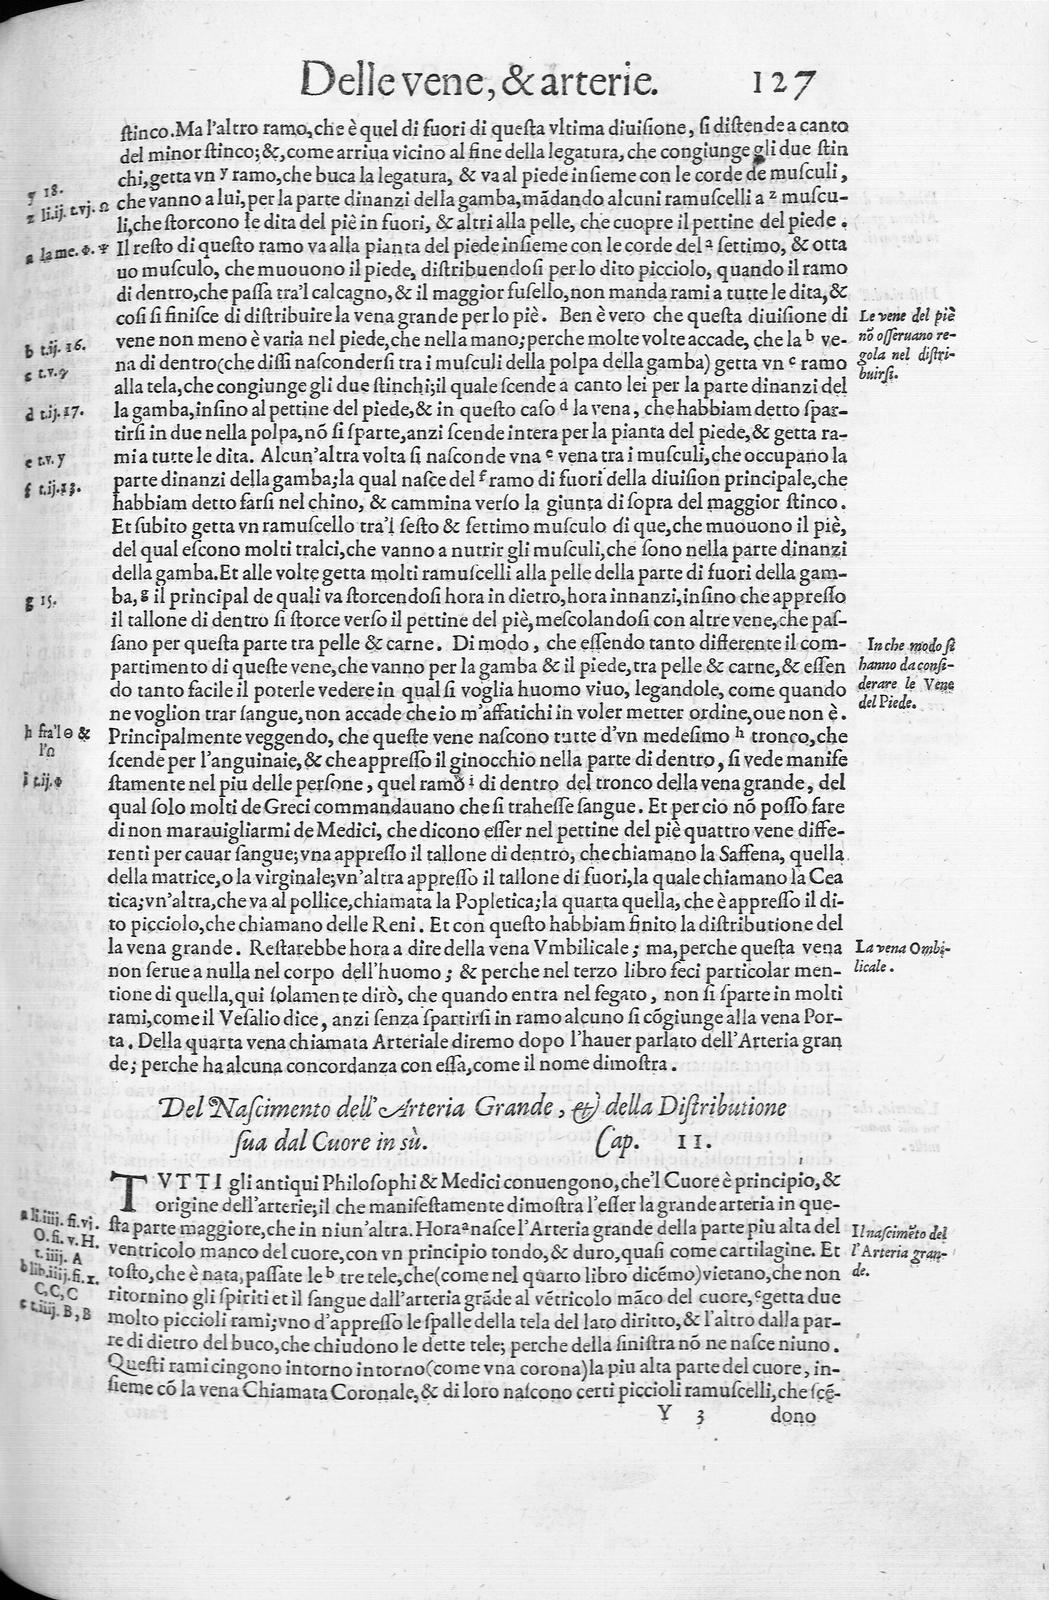 Delle vene, & arterie. 127
ſtinco. Ma l'altro ramo, che è quel di fuori di queſta vltima diuiſione, ſi diſtende a canto
del minor ſtinco; &, come arriua vicino al fine della legatura, che congiunge gli due ſtin
chi, getta vn y ramo, che buca la legatura, & va al piede inſieme con le corde de muſculi,
che vanno a lui, per la parte dinanzi della gamba, mādando alcuni ramuſcelli a z muſcu-
li, che ſtorcono le dita del piè in fuori, & altri alla pelle, che cuopre il pettine del piede.
Il reſto di queſto ramo va alla pianta del piede inſieme con le corde del a ſettimo, & otta
uo muſculo, che muouono il piede, diſtribuendoſi per lo dito picciolo, quando il ramo
di dentro, che paſſa tra'l calcagno, & il maggior fuſello, non manda rami a tutte le dita, &
coſi ſi finiſce di diſtribuire la vena grande per lo piè. Ben è vero che queſta diuiſione di
vene non meno è varia nel piede, che nella mano; perche molte volte accade, che la b ve-
na di dentro (che diſſi naſconderſi tra i muſculi della polpa della gamba) getta vn c ramo
alla tela, che congiunge gli due ſtinchi; il quale ſcende a canto lei per la parte dinanzi del
la gamba, inſino al pettine del piede, & in queſto caſo d la vena, che habbiam detto ſpar-
tirſi in due nella polpa, nō ſi ſparte, anzi ſcende intera per la pianta del piede, & getta ra-
mi a tutte le dita. Alcun'altra volta ſi naſconde vna e vena tra i muſculi, che occupano la
parte dinanzi della gamba; la qual naſce del f ramo di fuori della diuiſion principale, che
habbiam detto farſi nel chino, & cammina verſo la giunta di ſopra del maggior ſtinco.
Et ſubito getta vn ramuſcello tra'l ſeſto & ſettimo muſculo di que, che muouono il piè,
del qual eſcono molti tralci, che vanno a nutrir gli muſculi, che ſono nella parte dinanzi
della gamba. Et alle volte getta molti ramuſcelli alla pelle della parte di fuori della gam-
ba, g il principal de quali va ſtorcendoſi hora in dietro, hora innanzi, inſino che appreſſo
il tallone di dentro ſi ſtorce verſo il pettine del piè, meſcolandoſi con altre vene, che paſ-
ſano per queſta parte tra pelle & carne. Di modo, che eſſendo tanto differente il com-
partimento di queſte vene, che vanno per la gamba & il piede, tra pelle & carne, & eſſen
do tanto facile il poterle vedere in qual ſi voglia huomo viuo, legandole, come quando
ne voglion trar ſangue, non accade che io m'affatichi in voler metter ordine, oue non è.
Principalmente veggendo, che queſte vene naſcono tutte d'vn medeſimo h tronco, che
ſcende per l'anguinaie, & che appreſſo il ginocchio nella parte di dentro, ſi vede manife
ſtamente nel piu delle perſone, quel ramo i di dentro del tronco della vena grande, del
qual ſolo molti de Greci commandauano che ſi traheſſe ſangue. Et per cio nō poſſo fare
di non marauigliarmi de Medici, che dicono eſſer nel pettine del piè quattro vene diffe-
renti per cauar ſangue; vna appreſſo il tallone di dentro, che chiamano la Saffena, quella
della matrice, o la virginale; vn'altra appreſſo il tallone di fuori, la quale chiamano la Cea
tica; vn'altra, che va al pollice, chiamata la Popletica; la quarta quella, che è appreſſo il di-
to picciolo, che chiamano delle Reni. Et con queſto habbiam finito la diſtributione del
la vena grande. Reſtarebbe hora a dire della vena Vmbilicale; ma, perche queſta vena
non ſerue a nulla nel corpo dell'huomo; & perche nel terzo libro feci particolar men-
tione di quella, qui ſolamente dirò, che quando entra nel fegato, non ſi ſparte in molti
rami, come il Veſalio dice, anzi ſenza ſpartirſi in ramo alcuno ſi cōgiunge alla vena Por-
ta. Della quarta vena chiamata Arteriale diremo dopo l'hauer parlato dell'Arteria gran
de; perche ha alcuna concordanza con eſſa, come il nome dimoſtra.
Del Naſcimento dell'Arteria Grande, & della Diſtributione
ſua dal Cuore in sù. Cap. II.
TVTTI gli antiqui Philoſophi & Medici conuengono, che'l Cuore è principio, &
origine dell'arterie; il che manifeſtamente dimoſtra l'eſſer la grande arteria in que-
ſta parte maggiore, che in niun'altra. Hora a naſce l'Arteria grande della parte piu alta del
ventricolo manco del cuore, con vn principio tondo, & duro, quaſi come cartilagine. Et
toſto, che è nata, paſſate le b tre tele, che (come nel quarto libro dicēmo) vietano, che non
ritornino gli ſpiriti et il ſangue dall'arteria grāde al vētricolo māco del cuore, c getta due
molto piccioli rami; vno d'appreſſo le ſpalle della tela del lato diritto, & l'altro dalla par-
te di dietro del buco, che chiudono le dette tele; perche della ſiniſtra nō ne naſce niuno.
Queſti rami cingono intorno intorno (come vna corona) la piu alta parte del cuore, in-
ſieme cō la vena Chiamata Coronale, & di loro naſcono certi piccioli ramuſcelli, che ſcē-
Y 3 dono
y 18.
z li.ij. t.vj. Ω
a la me. Φ. Ψ
b t.ij. 16.
c t.v. 
d t.ij. 17.
e t.v. y
f t.ij. 13.
g 15.
h fra'l Θ &
l'Ω
i t.ij. Φ
a li.iiij. fi.vj.
O. fi. v. H.
t.iiij. A
b lib.iiij. fi.x.
C, C, C
c t.iiij. B, B
Le vene del piè
nō oſſeruano re-
gola nel diſtri-
buirſi.
In che modo ſi
hanno da conſi-
derare le Vene
del Piede.
La vena Ombi-
licale.
Il naſcimēto del
l'Arteria gran-
de.